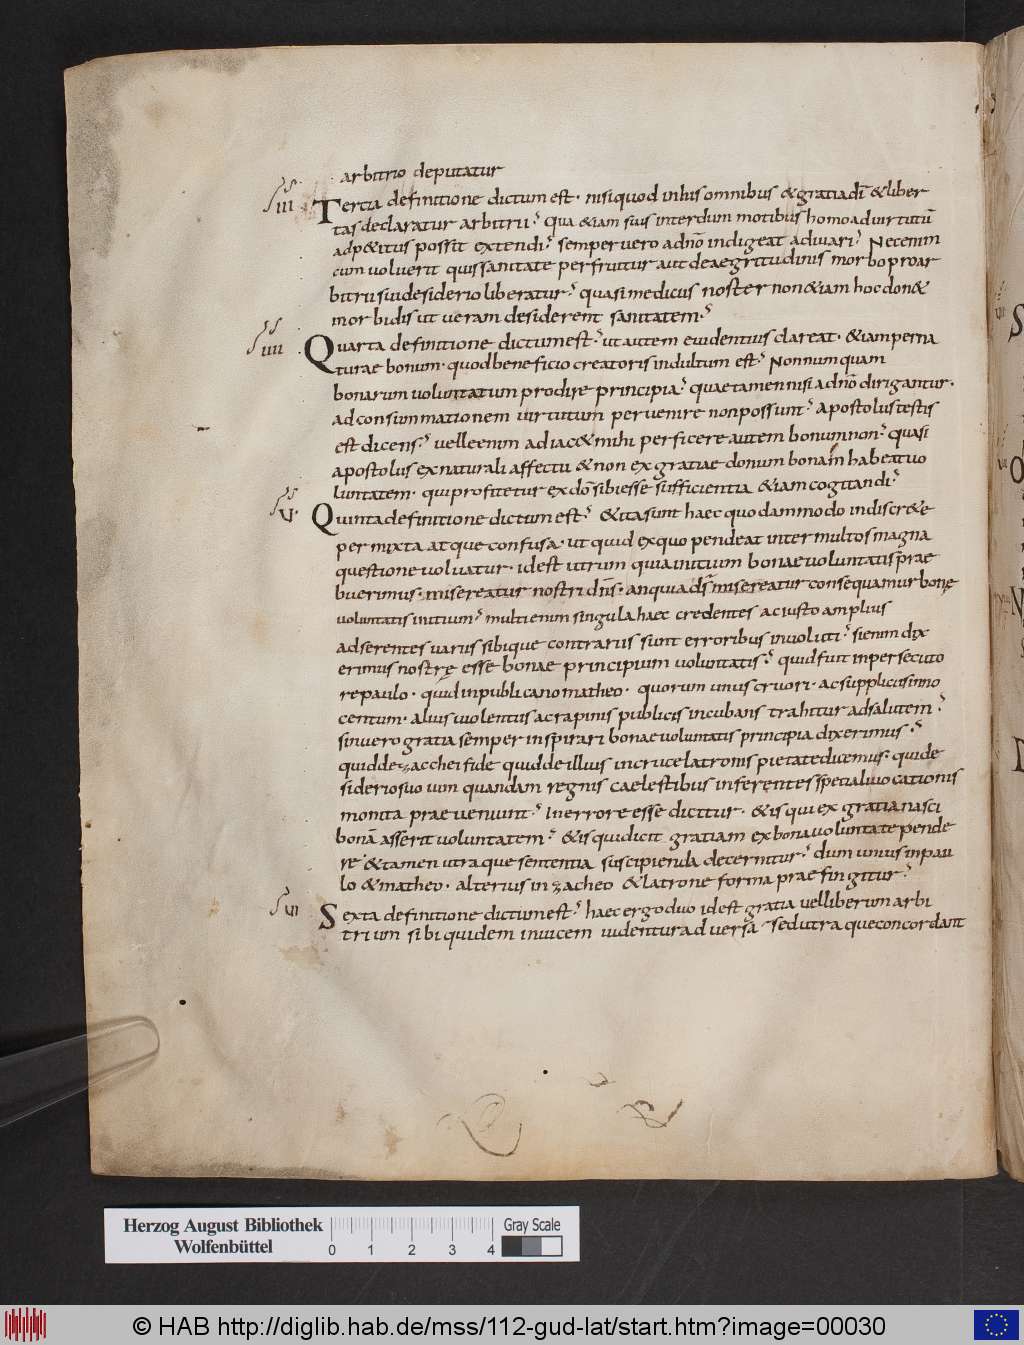 arbitrio deputatur
III Tertia definitione dictum est · nisi quod in his omnibus & gratia dī & liber
tas declaratur arbitrii · Qua &iam suis interdum motibus homo ad virtutū
adp&itus possit extendi · semper vero a dnō indigeat adiuvari · Nec enim
cum voluerit quis sanitate perfruitur aut de aegritudinis morbo pro ar
bitrii sui desiderio liberatur · quasi medicus noster non &iam hoc don&
morbidis ut veram desiderent sanitatem ·
IIII Quarta definitione dictum est · ut autem evidentius clareat · &iam per na
turae bonum · quod beneficio creatoris indultum est · Nonnumquam
bonarum voluntatum prodire principia · quae tamen nisi a dnō dirigantur ·
ad consummationem virtutum pervenire non possunt · apostolus testis
est dicens · velle enim adiac& mihi perficere autem bonum non · quasi
apostolus ex naturali affectu & non ex gratiae donum bonam habeat vo
luntatem · qui profitetur ex dō sibi esse sufficientia &iam cogitandi ·
V · Quinta definitione dictum est · & ita sunt haec quodammodo indiscr&e
permixta atque confusa · ut quid ex quo pendeat inter multos magna
questione volvatur · id est utrum quia initium bonae voluntatis prae
buerimus · misereatur nostri dns · an quia ds misereatur consequamur bonę
voluntatis initium · multi enim singula haec credentes ac iusto amplius
adserentes variis sibique contrariis sunt erroribus involuti · si enim dix
erimus nostrę esse bonae principium voluntatis · quid fuit in persecuto
re paulo · quid in publicano matheo · quorum unus cruori · ac suppliciis inno
centum · alius violentus ac rapinis publicis incubans trahitur ad salutem ·
sin vero gratia semper inspirari bonae voluntatis principia dixerimus ·
quid de zacchei fide quid de illius in cruce latronis pietate dicemus · qui de
siderio suo vim quandam regnis caelestibus inferentes specialivocationis
monita praevenerunt · In errore esse dicitur · & is qui ex gratia nasci
bonā asserit voluntatem · & is qui dicit gratiam ex bona voluntate pende
re · & tamen utraque sententia suscipienda decernitur · dum unius in pau
lo & matheo · alterius in zacheo & latrone forma praefingitur ·
VI Sexta definitione dictum est · haec ergo duo id est gratia vel liberum arbi
trium sibi quidem invicem videntur adversa sed utraque concordant
Herzog August Bibliothek
Wolfenbüttel
0 1 2 3 4
Gray Scale
© HAB http://diglib.hab.de/mss/112-gud-lat/start.htm?image=00030